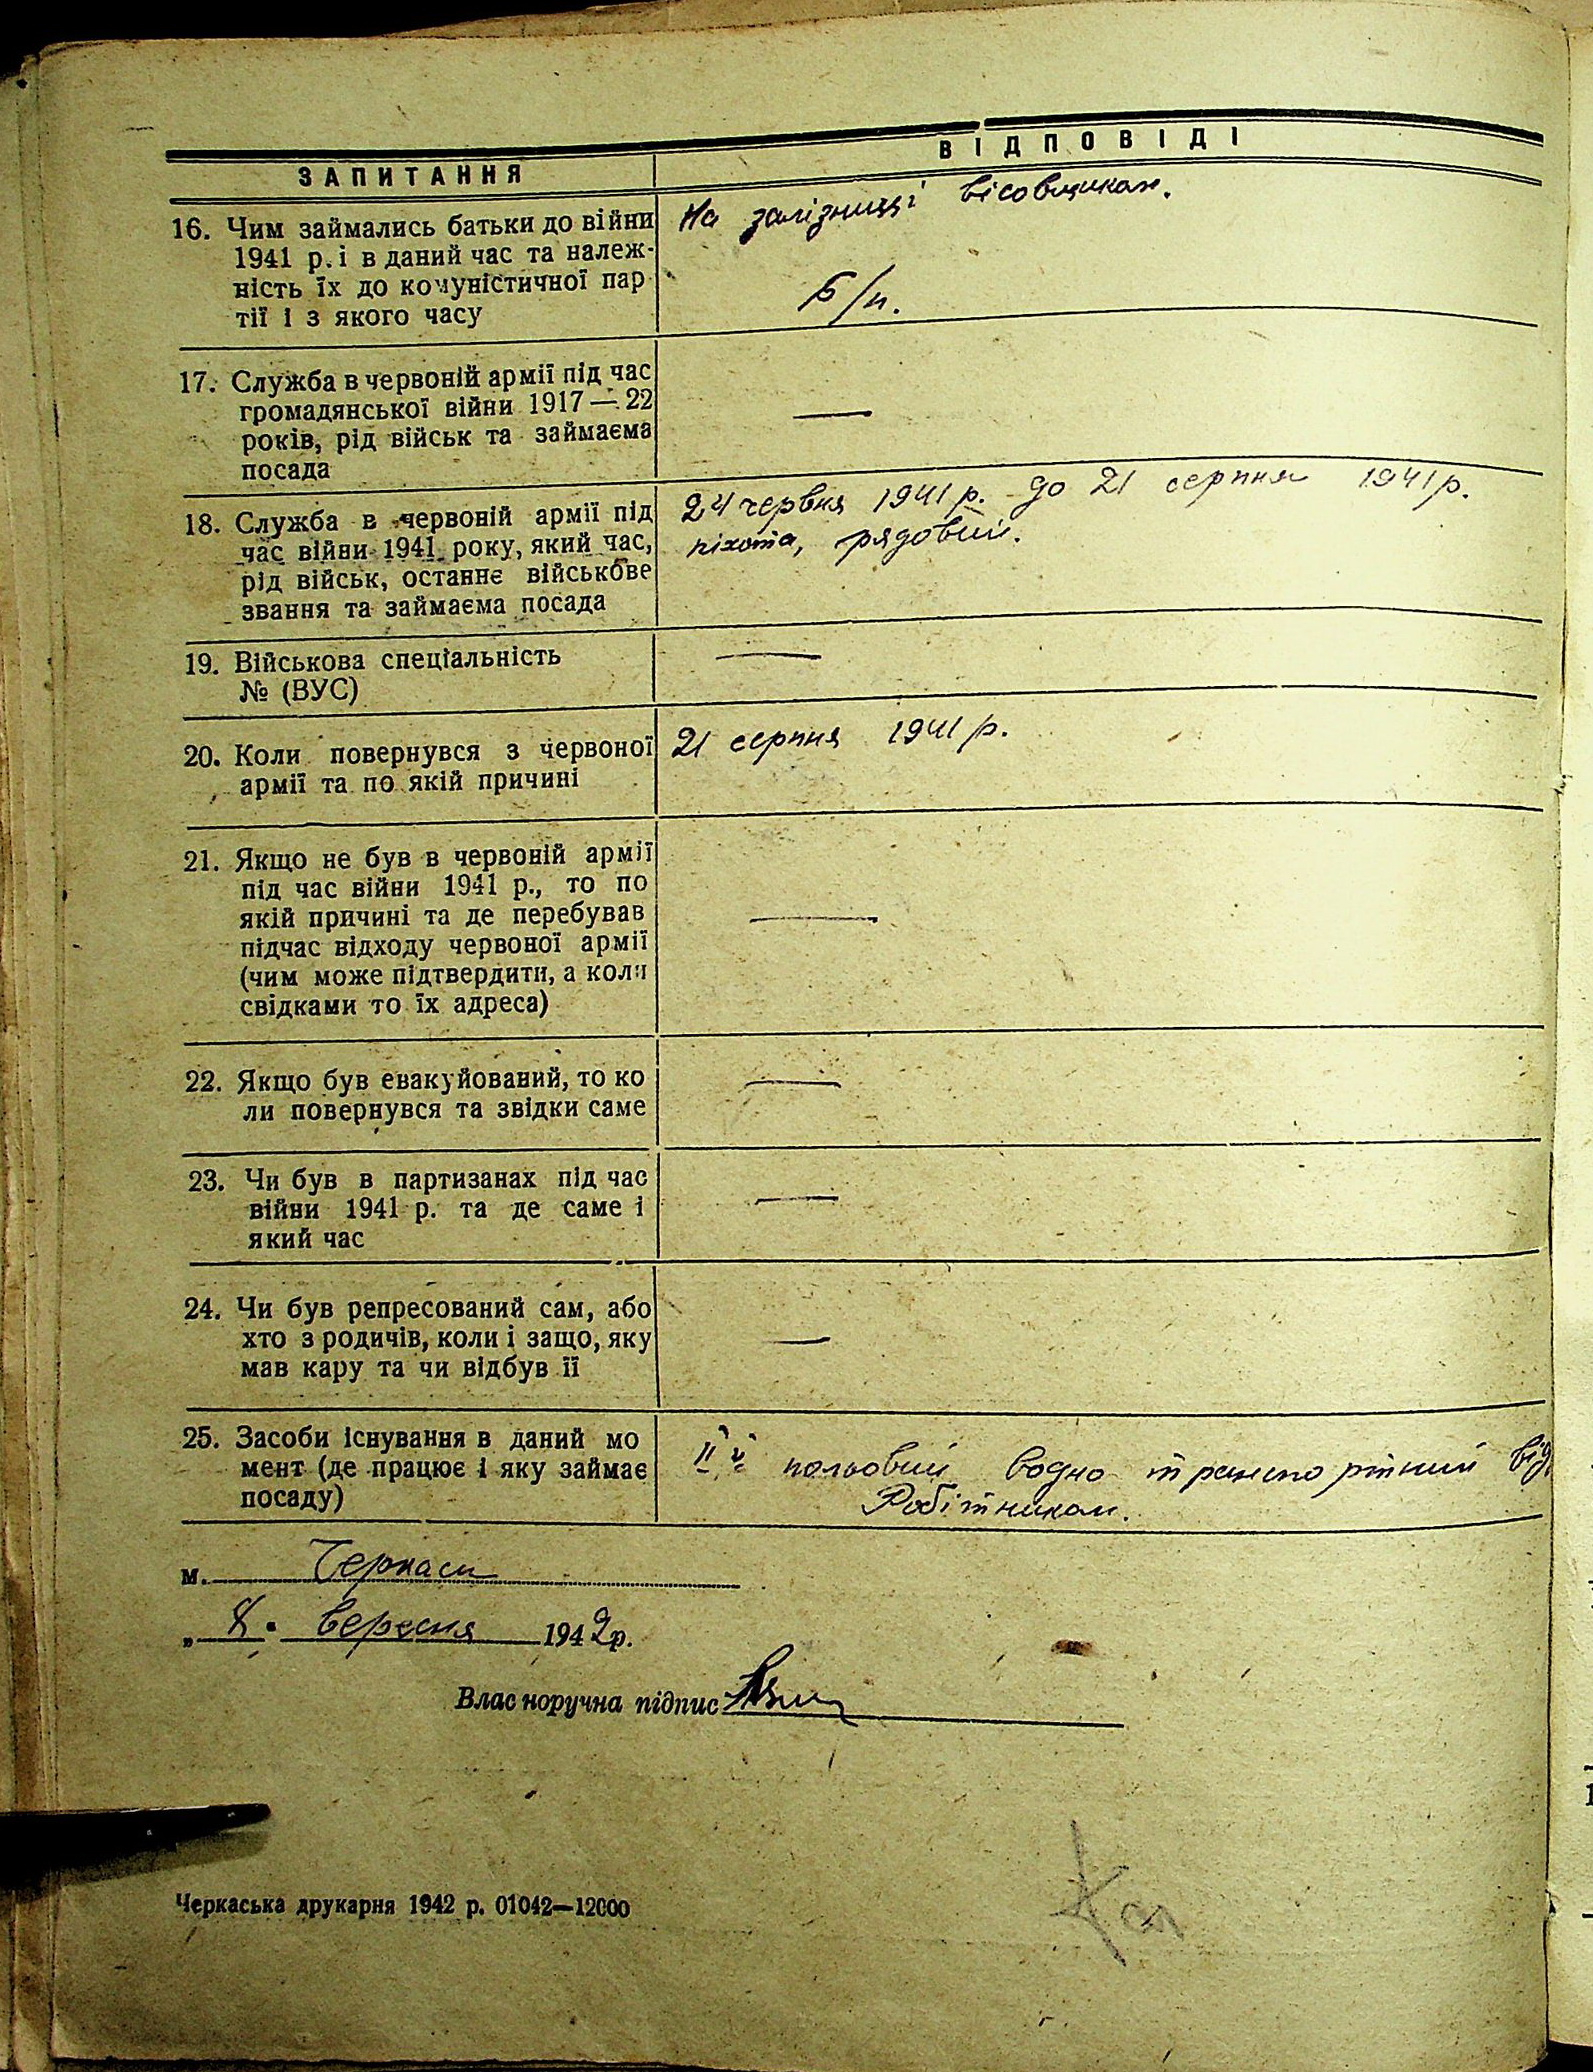 ЗАПИТАННЯ
ВІДПОВІДІ
16. Чим займались батьки до війни
1941 р. і в даний час та належ-
ність їх до комуністичної пар
тії і з якого часу
На залізниці вісовщиком.
Б/п.
17. Служба в червоній армії під час
громадянської війни 1917 — 22
років, рід військ та займаєма
посада
—
18. Служба в червоній армії під
час війни 1941 року, який час,
рід військ, останнє військове
звання та займаєма посада
24 червня 1941 р. до 21 серпня 1941 р.
піхота, рядовий.
19. Військова спеціальність
№ (ВУС)
—
20. Коли повернувся з червоної
армії та по якій причині
21 серпня 1941 р.
21. Якщо не був в червоній армії
під час війни 1941 р., то по
якій причині та де перебував
підчас відходу червоної армії
(чим може підтвердити, а коли
свідками то їх адреса)
—
22. Якщо був евакуйований, то ко
ли повернувся та звідки саме
—
23. Чи був в партизанах під час
війни 1941 р. та де саме і
який час
—
24. Чи був репресований сам, або
хто з родичів, коли і защо, яку
мав кару та чи відбув її
—
25. Засоби існування в даний мо
мент (де працює і яку займає
посаду)
польовий водно транспортний від.
Робітником.
м. Черкаси
„ 8 " вересня 1942 р.
Власноручна підпис
Черкаська друкарня 1942 р. 01042—12000